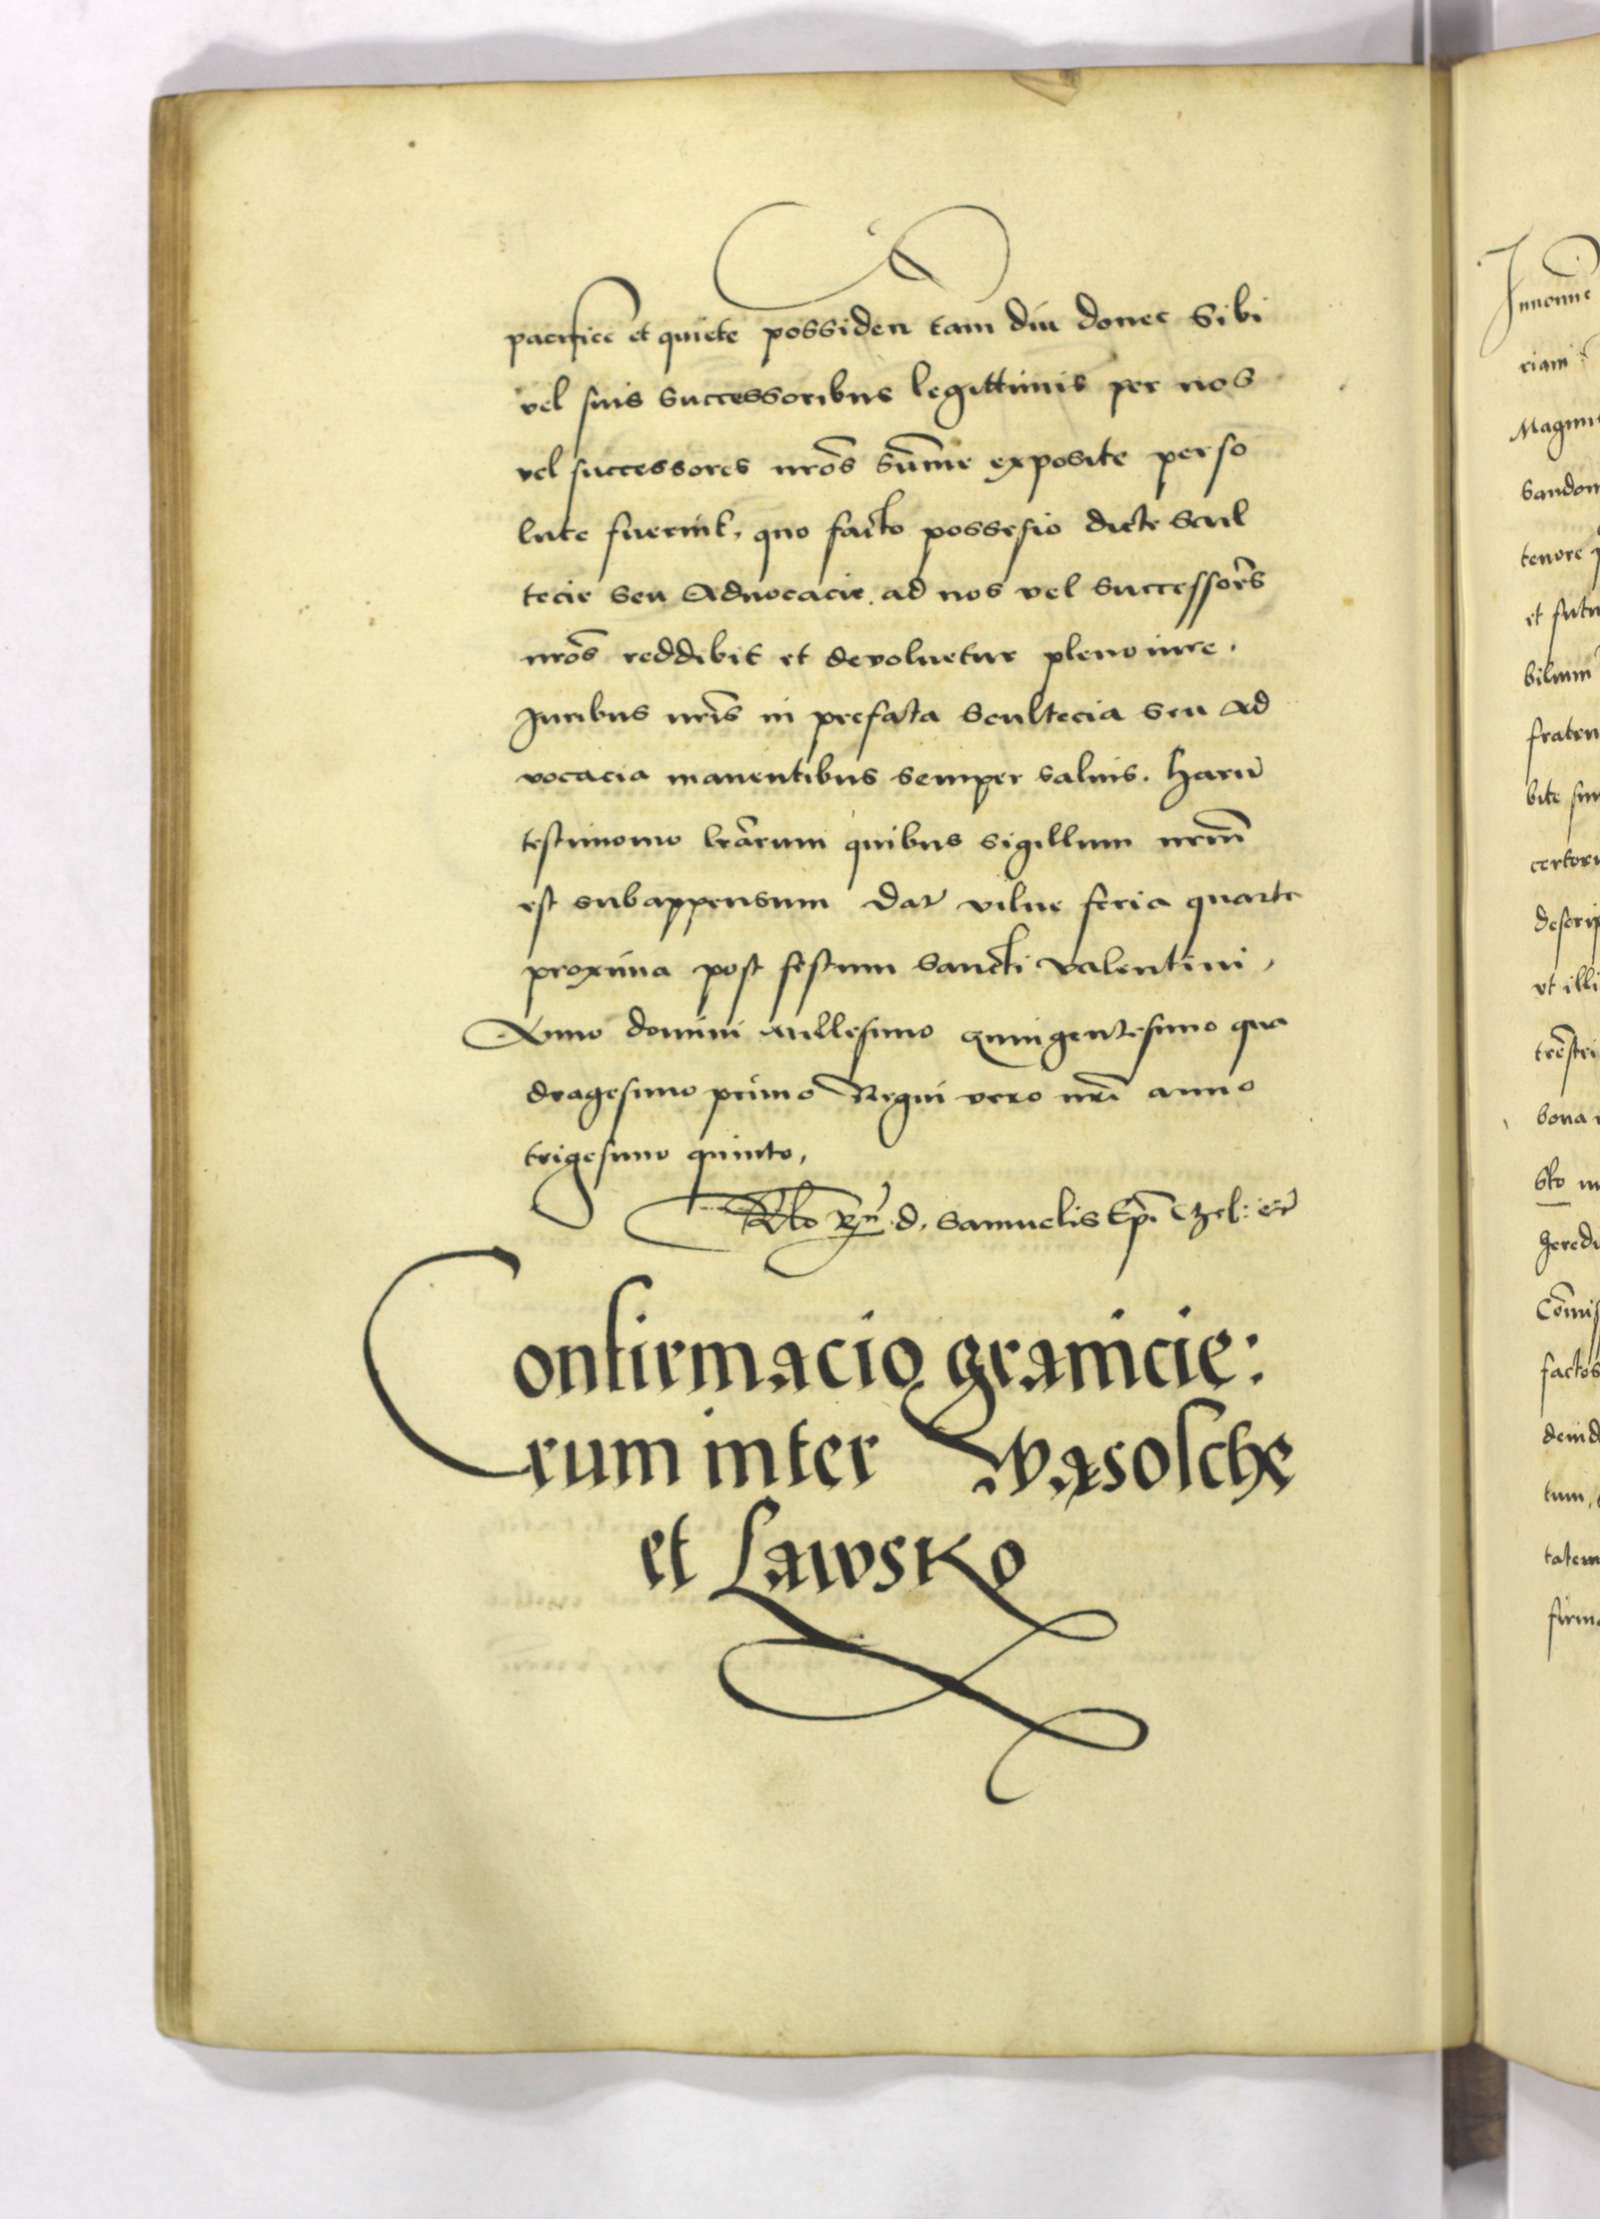 pacifice et quiete possiden tam diu donec Sibi
vel suis Successoribus legittimis per nos
vel successores nrōs sūmme exposite perso
lute fuerint, quo facto possesio dicte Scul
tecie seu Advocacie, ad nos vel Successorēs
nrōs reddibit et devoluetur pleno iure.
Iuribus nrīs in prefata Scultecia seu Ad
vocacia manentibus semper saluis. Harū
testimonio lrārum quibus sigillum nrūm
est subappensum Dat vilne feria quarte
proxima post festum Sancti Valentini,
Anno domini millesimo quingentesimo qua
dragesimo primo Regni vero nrī anno
trigesimo quinto,
Rlo Rn̄. d. Samuelis Ep̄i
Confirmacio granicie:
rum inter Wąsosche
et Lawsko
Innomine
riam
Magnu
Sandom
tenore
et futu
bilium
fratru
bite
certor
descrip
vt illi
trēstri
bona
sko
hered
Cōmis
factos
deind
tum,
tatem
firm